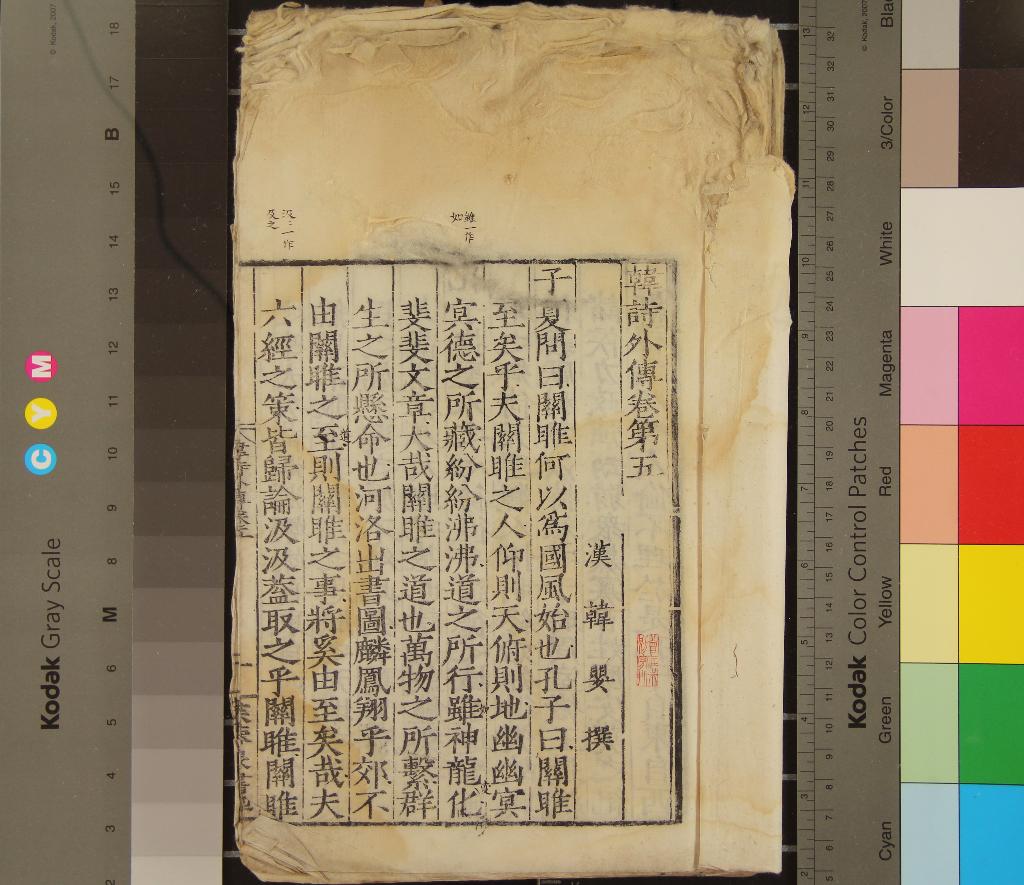 韓詩外傳卷第五
漢韓嬰撰
子夏問曰關雎何以爲國風始也孔子曰關雎
至矣乎夫關雎之人仰則天俯則地幽幽冥
冥德之所藏紛紛沸沸道之所行雖神龍化
斐斐文章大哉關雎之道也萬物之所繫群
生之所懸命也河洛出書圖麟鳳翔乎郊不
由關雎之至則關雎之事將奚由至矣哉夫
六經之策皆歸論汲汲蓋取之乎關雎關雎
雖一作
如
汲汲一作
及之
Kodak Gray Scale
C Y M
© Kodak, 2007
2 3 4 5 6 M 8 9 10 11 12 13 14 15 B 17 18
Kodak Color Control Patches
© Kodak, 2007
Cyan
Green
Yellow
Red
Magenta
White
3/Color